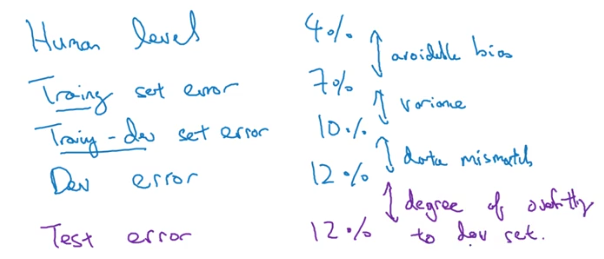 Human level 4%
avoidable bias
Training set error 7%
variance
Training - dev set error 10%
data mismatch
Dev error 12%
degree of overfitting
Test error 12% to dev set.